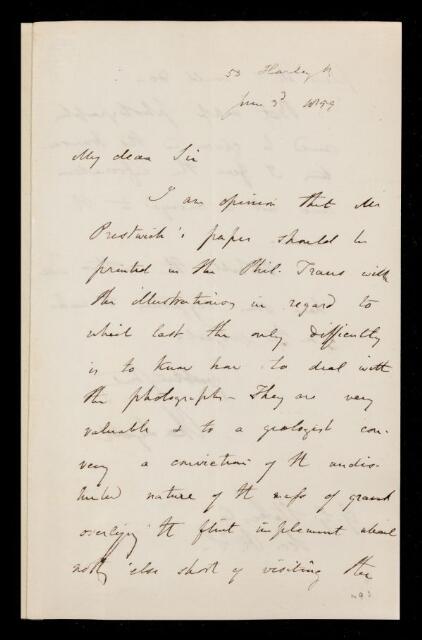 53 Harley St
June 3d 1859
My dear Sir
I am opinion that Mr
Prestwich's paper should be
printed in the Phil. Trans with
the illustrations in regard to
which last the only difficulty
is to know how to deal with
the photographs - They are very
valuable & to a geologist con-
vey a conviction of the undis-
turbed nature of the mass of gravel
overlying the flint implement which
nothg else short of visiting the